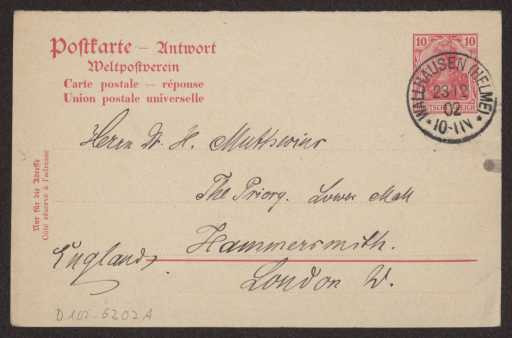 Postkarte – Antwort
Weltpostverein
Carte postale – réponse
Union postale universelle
10 10
WALLHAUSEN (HELME)
23 12
02
* 10-11N *
Herrn Dr. H.
The Priory. Lower Mall
Hammersmith.
England.
London W.
Nur für die Adresse
Côté réservé à l'adresse
D 102-6202 A